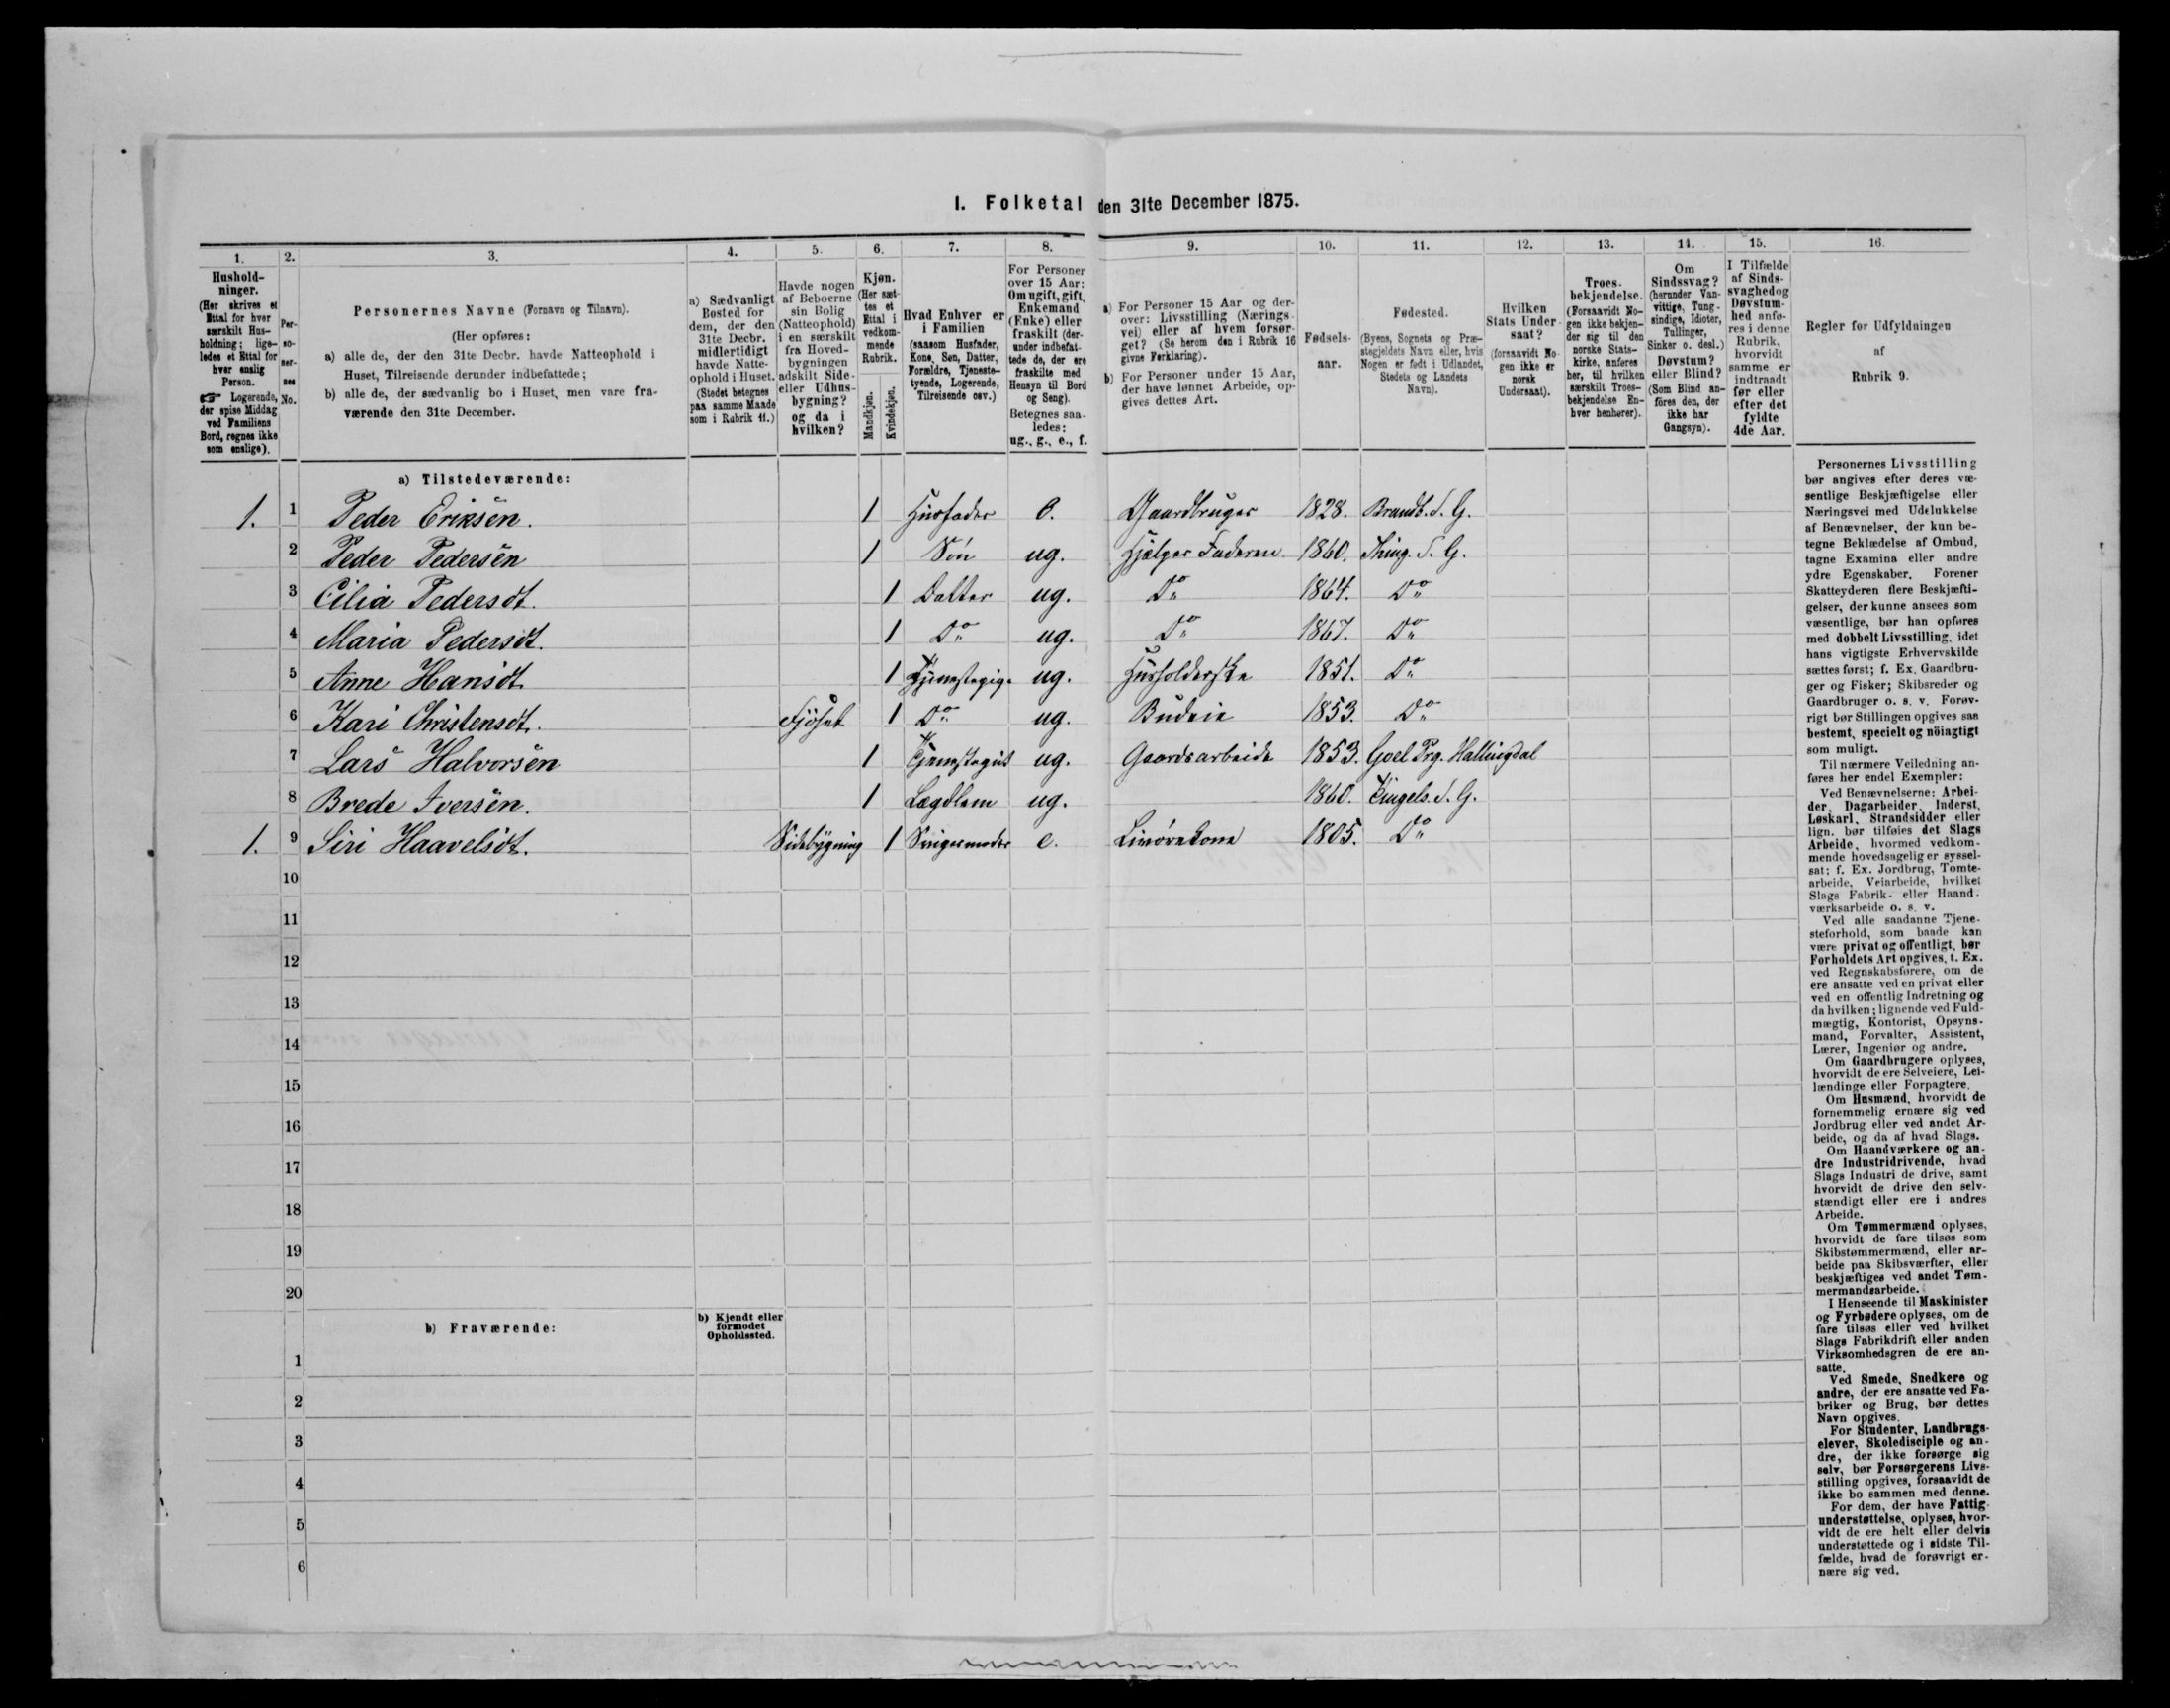 I. Folketal den 31te December 1875.
1. 2. 3. 4. 5. 6. 7. 8. 9. 10. 11. 12. 13. 14. 15. 16.
Hushold-
ninger.
(Her skrives et
Ettal for hver
særskilt Hus-
holdning; lige-
ledes et Ettal for
hver enslig
Person.
☞ Logerende,
der spise Middag
ved Familiens
Bord, regnes ikke
som enslige).
Per-
so-
ner-
nes
No.
Personernes Navne (Fornavn og Tilnavn).
(Her opføres:
a) alle de, der den 31te Decbr. havde Natteophold i
Huset, Tilreisende derunder indbefattede;
b) alle de, der sædvanlig bo i Huset, men vare fra-
værende den 31te December.
a) Sædvanligt
Bosted for
dem, der den
31te Decbr.
midlertidigt
havde Natte-
ophold i Huset.
(Stedet betegnes
paa samme Maade
som i Rubrik 11.)
Havde nogen
af Beboerne
sin Bolig
(Natteophold)
i en særskilt
fra Hoved-
bygningen
adskilt Side-
eller Udhus-
bygning?
og da i
hvilken?
Kjøn.
(Her sæt-
tes et
Ettal i
vedkom-
mende
Rubrik.
Mandkjøn.
Kvindekjøn.
Hvad Enhver er
i Familien
(saasom Husfader,
Kone, Søn, Datter,
Forældre, Tjeneste-
tyende, Logerende,
Tilreisende osv.)
For Personer
over 15 Aar:
Om ugift, gift,
Enkemand
(Enke) eller
fraskilt (der-
under indbefat-
tede de, der ere
fraskilte med
Hensyn til Bord
og Seng).
Betegnes saa-
ledes:
ug., g., e., f.
a) For Personer 15 Aar og der-
over: Livsstilling (Nærings-
vei) eller af hvem forsør-
get? (Se herom den i Rubrik 16
givne Forklaring).
b) For Personer under 15 Aar,
der have lønnet Arbeide, op-
gives dettes Art.
Fødsels-
aar.
Fødested.
(Byens, Sognets og Præ-
stegjeldets Navn eller, hvis
Nogen er født i Udlandet,
Stedets og Landets
Navn).
Hvilken
Stats Under-
saat?
(forsaavidt No-
gen ikke er
norsk
Undersaat).
Troes-
bekjendelse.
(Forsaavidt No-
gen ikke bekjen-
der sig til den
norske Stats-
kirke, anføres
her, til hvilken
særskilt Troes-
bekjendelse En-
hver henhører).
Om
Sindssvag?
(herunder Van-
vittige, Tung-
sindige, Idioter,
Tullinger,
Sinker o. desl.)
Døvstum?
eller Blind?
(Som Blind an-
föres den, der
ikke har
Gangsyn).
I Tilfælde
af Sinds-
svaghed og
Døvstum-
hed anfø-
res i denne
Rubrik,
hvorvidt
samme er
indtraadt
før eller
efter det
fyldte
4de Aar.
Regler for Udfyldningen
af
Rubrik 9.
a) Tilstedeværende:
1. 1 Peder Eriksen. 1 Husfader e. Gaardbruger 1828. Brandb. S. G.
2 Peder Pedersen 1 Søn ug. Hjælper Faderen 1860. Thing. S. G.
3 Cilia Pedersdt. 1 Datter ug. Do 1864. Do
4 Maria Pedersdt. 1 Do ug. Do 1867. Do
5 Anne Hansdt. 1 Tjenestepige ug. Husholderske 1851. Do
6 Kari Christensdt. Fjöset 1 Do ug. Budeie 1853. Do
7 Lars Halvorsen 1 Tjenestegut ug. Gaardsarbeide 1853. Goel Prg. Hallingdal
8 Brede Iversen. 1 Lægdlem ug. 1860. S. G.
1. 9 Siri Haavelsdt. Sidebygning 1 Svigermoder e. 1805. Do
10
11
12
13
14
15
16
17
18
19
20
b) Fraværende:
b) Kjendt eller
formodet
Opholdssted.
1
2
3
4
5
6
Personernes Livsstilling
bør angives efter deres væ-
sentlige Beskjæftigelse eller
Næringsvei med Udelukkelse
af Benævnelser, der kun be-
tegne Beklædelse af Ombud,
tagne Examina eller andre
ydre Egenskaber. Forener
Skatteyderen flere Beskjæfti-
gelser, der kunne ansees som
væsentlige, bør han opføres
med dobbelt Livsstilling, idet
hans vigtigste Erhvervskilde
sættes først; f. Ex. Gaardbru-
ger og Fisker; Skibsreder og
Gaardbruger o. s. v. Forøv-
rigt bør Stillingen opgives saa
bestemt, specielt og nöiagtigt
som muligt.
Til nærmere Veiledning an-
føres her endel Exempler:
Ved Benævnelserne: Arbei-
der, Dagarbeider, Inderst,
Løskarl, Strandsidder eller
lign. bør tilføies det Slags
Arbeide, hvormed vedkom-
mende hovedsagelig er syssel-
sat; f. Ex. Jordbrug, Tomte-
arbeide, Veiarbeide, hvilket
Slags Fabrik- eller Haand-
værksarbeide o. s. v.
Ved alle saadanne Tjene-
steforhold, som baade kan
være privat og offentligt, bør
Forholdets Art opgives, t. Ex.
ved Regnskabsførere, om de
ere ansatte ved en privat eller
ved en offentlig Indretning og
da hvilken; lignende ved Fuld-
mægtig, Kontorist, Opsyns-
mand, Forvalter, Assistent,
Lærer, Ingeniør og andre.
Om Gaardbrugere oplyses,
hvorvidt de ere Selveiere, Lei-
lændinge eller Forpagtere.
Om Husmænd, hvorvidt de
fornemmelig ernære sig ved
Jordbrug eller ved andet Ar-
beide, og da af hvad Slags.
Om Haandværkere og an-
dre Industridrivende, hvad
Slags Industri de drive, samt
hvorvidt de drive den selv-
stændigt eller ere i andres
Arbeide.
Om Tømmermænd oplyses,
hvorvidt de fare tilsøs som
Skibstømmermænd, eller ar-
beide paa Skibsværfter, eller
beskjæftiges ved andet Tøm-
mermandsarbeide.
I Henseende til Maskinister
og Fyrbødere oplyses, om de
fare tilsøs eller ved hvilket
Slags Fabrikdrift eller anden
Virksomhedsgren de ere an-
satte.
Ved Smede, Snedkere og
andre, der ere ansatte ved Fa-
briker og Brug, bør dettes
Navn opgives.
For Studenter, Landbrugs-
elever, Skoledisciple og an-
dre, der ikke forsørge sig
selv, bør Forsørgerens Livs-
stilling opgives, forsaavidt de
ikke bo sammen med denne.
For dem, der have Fattig-
understøttelse, oplyses, hvor-
vidt de ere helt eller delvis
understøttede og i sidste Til-
fælde, hvad de forøvrigt er-
nære sig ved.